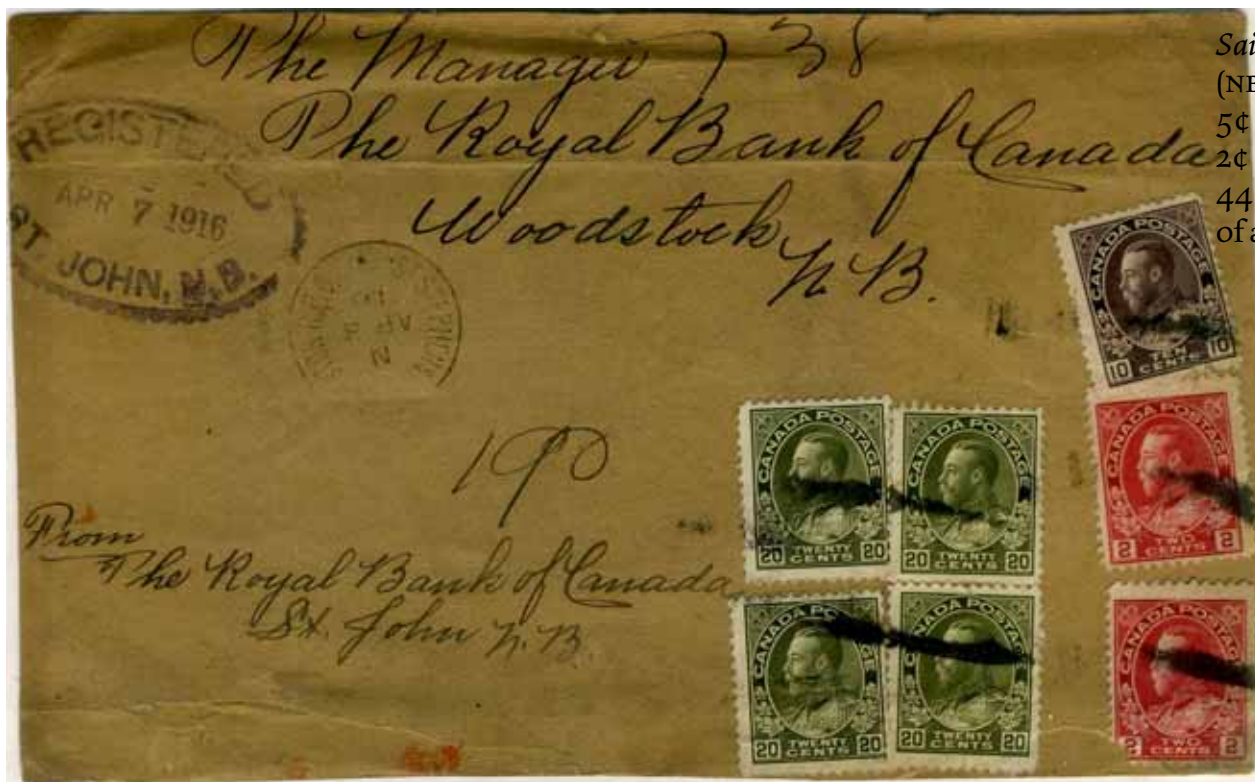 The Manager 38
The Royal Bank of Canada
Woodstock
N.B.
REGISTERED
APR 7 1916
ST. JOHN, N.B.
190
From
The Royal Bank of Canada
St. John N.B.
CANADA POSTAGE
10 TEN CENTS 10
CANADA POSTAGE
2 TWO CENTS 2
CANADA POSTAGE
2 TWO CENTS 2
CANADA POSTAGE
20 TWENTY CENTS 20
CANADA POSTAGE
20 TWENTY CENTS 20
CANADA POSTAGE
20 TWENTY CENTS 20
CANADA POSTAGE
20 TWENTY CENTS 20
5¢
2¢
44
of a